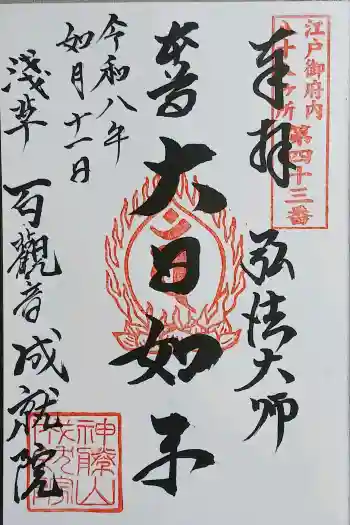 江戸御府内
八十八ヶ所 第四十三番
奉拝 弘法大師
本尊
大日如来
令和八年
如月十一日
浅草 百観音成就院
神勝山
成就院